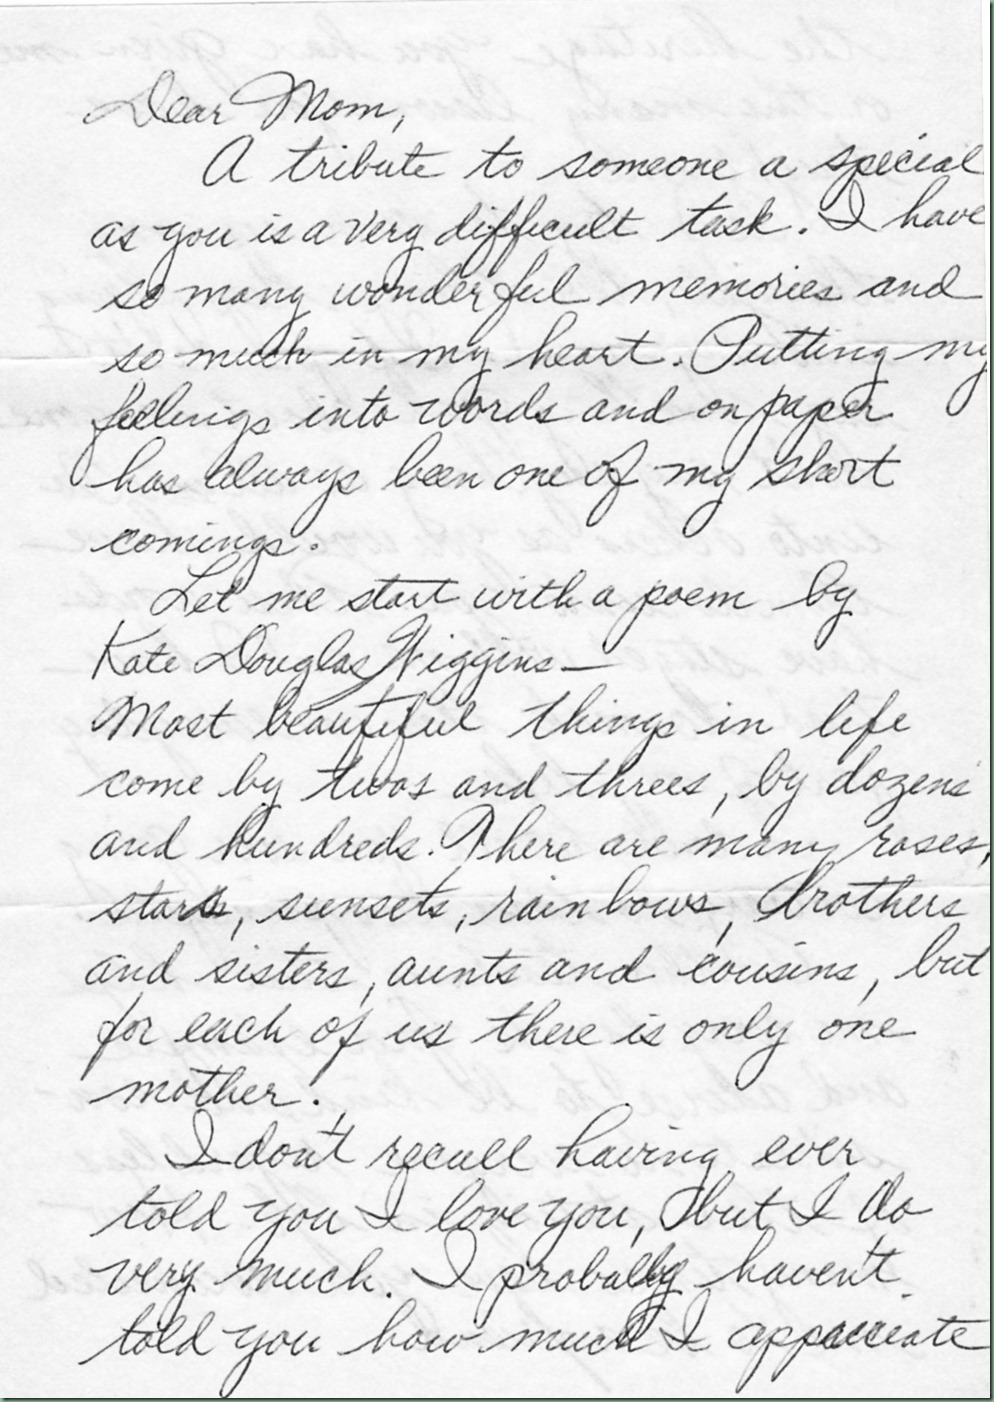 Dear Mom,
A tribute to someone a special
as you is a very difficult task. I have
so many wonderful memories and
so much in my heart. Putting my
feelings into words and on paper
has always been one of my short
comings.
Let me start with a poem by
Kate Douglas Wiggins—
Most beautiful things in life
come by twos and threes, by dozens
and hundreds. There are many roses,
stars, sunsets, rainbows, brothers
and sisters, aunts and cousins, but
for each of us there is only one
mother.
I don't recall having ever
told you I love you, but I do
very much. I probably haven't
told you how much I appreciate